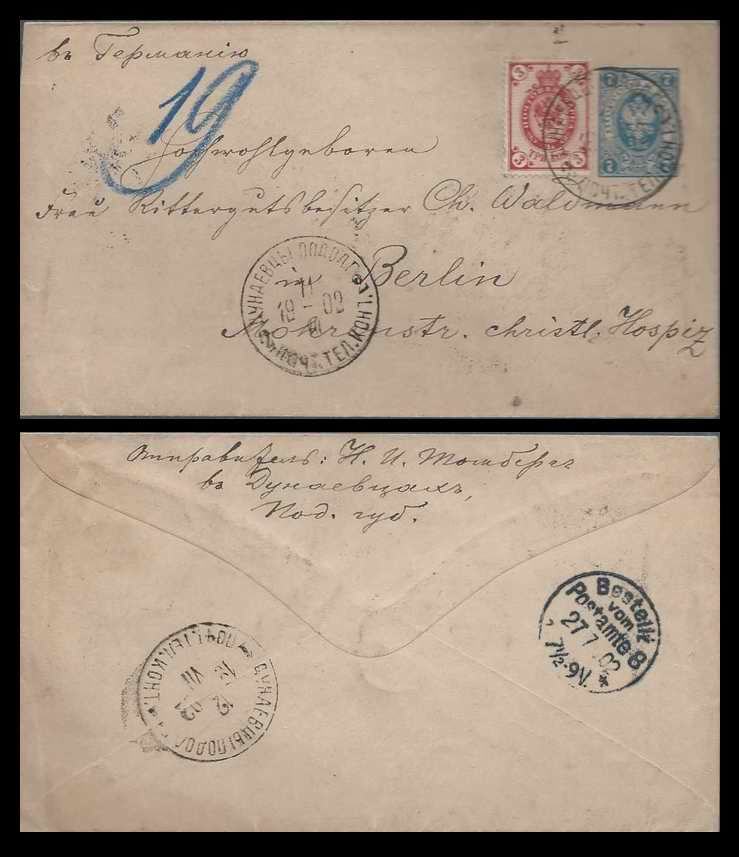 въ Германію
19
3 3
3 3
7 7
7 7
Hochwohlgeboren
Frau Rittergutsbesitzer Ch. Waldmann
in Berlin
Mohrenstr. christl. Hospiz
ДУНАЕВЦЫ ПОДОЛ. Г.
ПОЧТ. ТЕЛ. КОНТ.
Отправитель: Н. И.
въ Дунаевцахъ,
Под. губ.
Bestellt
vom
Postamte 8
27 7 02
7½-9V.
ДУНАЕВЦЫ ПОДОЛ.
ПОЧТ. ТЕЛ. КОНТ.
12
VII
02